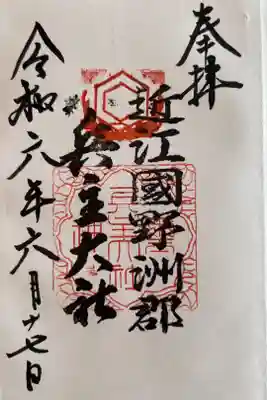 奉拝
近江國野洲郡
兵主大社
令和六年六月十七日